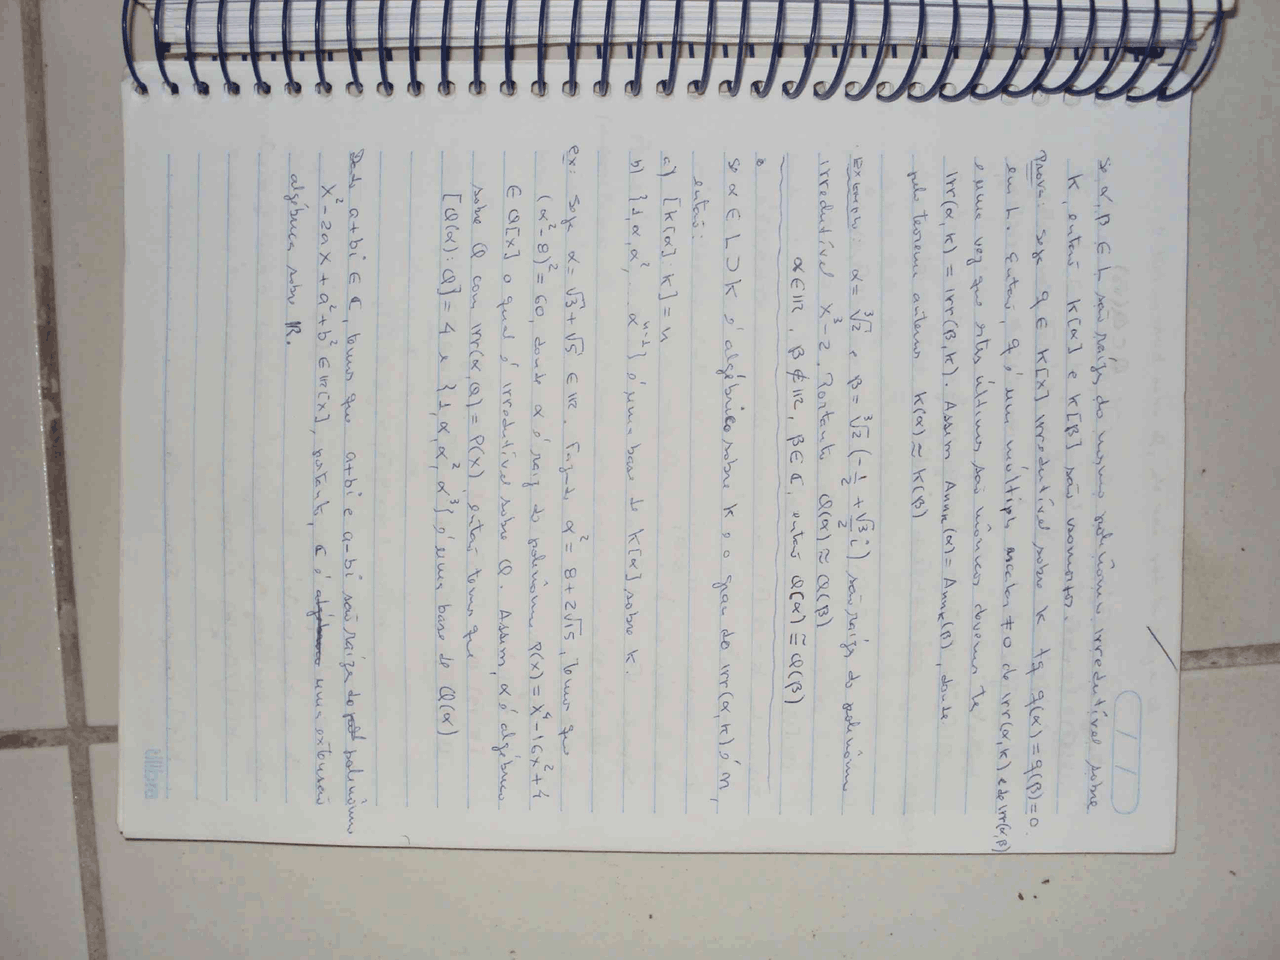 / /
Se α, β ∈ L são raízes do mesmo polinômio irredutível sobre
K, então K[α] e K[β] são isomorfos.
Prova: Seja q ∈ K[x] irredutível sobre K tq q(α) = q(β) = 0.
em L. Então, q é um múltiplo escalar ≠ 0 de irr(α, K) e de irr(α, β)
e uma vez que estes últimos são mônicos devemos ter
irr(α, K) = irr(β, K). Assim Annₖ(α) = Annₖ(β), donde
pelo teorema anterior K(α) ≃ K(β)
Exemplo: α = ∛2 e β = ∛2 (-1/2 + √3/2 i) são raízes do polinômio
irredutível x³ - 2. Portanto Q(α) ≅ Q(β)
α ∈ IR, β ∉ IR, β ∈ ℂ, então Q(α) ≅ Q(β)
Se α ∈ L ⊃ K é algébrico sobre K e o grau de irr(α, K) é n,
então:
a) [K[α] K] = n
b) {1, α, α², α^{n-1}} é uma base de K[α] sobre K.
ex: Seja α = √3 + √5 ∈ IR. Fazendo α² = 8 + 2√15, temos que
(α² - 8)² = 60, donde α é raiz do polinômio P(x) = x⁴ - 16x² + 4
∈ Q[x] o qual é irredutível sobre Q. Assim, α é algébrico
sobre Q com irr(α, Q) = P(x), então temos que
[Q(α) : Q] = 4 e {1, α, α², α³} é uma base de Q(α)
Dado a + bi ∈ ℂ, temos que a + bi e a - bi são raízes do polinômio
x² - 2ax + a² + b² ∈ IR[x], portanto, ℂ é uma extensão
algébrica sobre IR.
tilibra